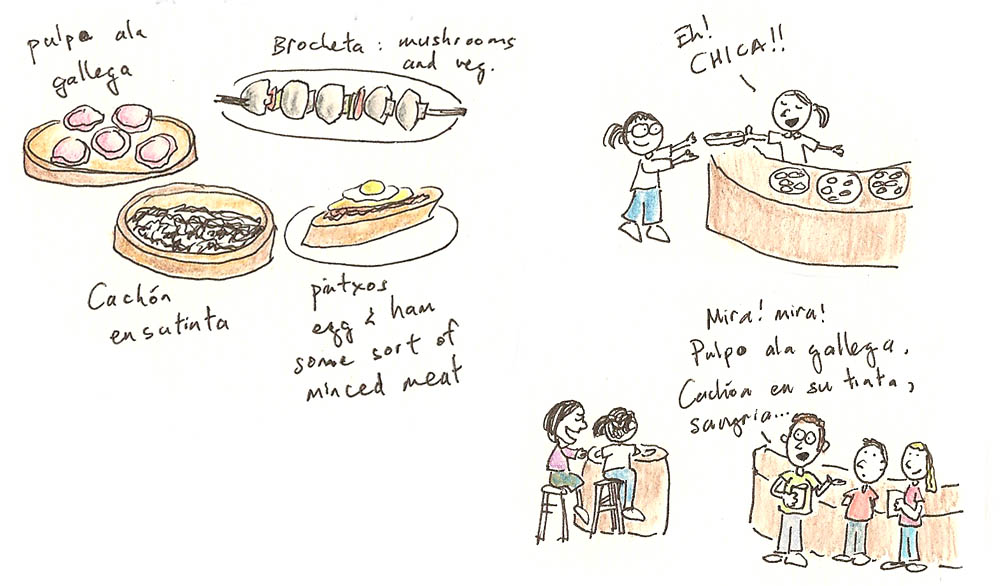 pulpo ala
gallega
Brocheta: mushrooms
and veg.
Cachón
ensutinta
pintxos
egg & ham
some sort of
minced meat
Eh!
CHICA!!
Mira! mira!
Pulpo ala gallega,
Cachón en su tinta,
sangria...